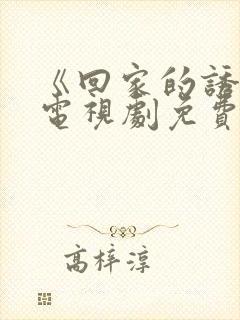 《回家的誘
電視劇免費
高梓淳